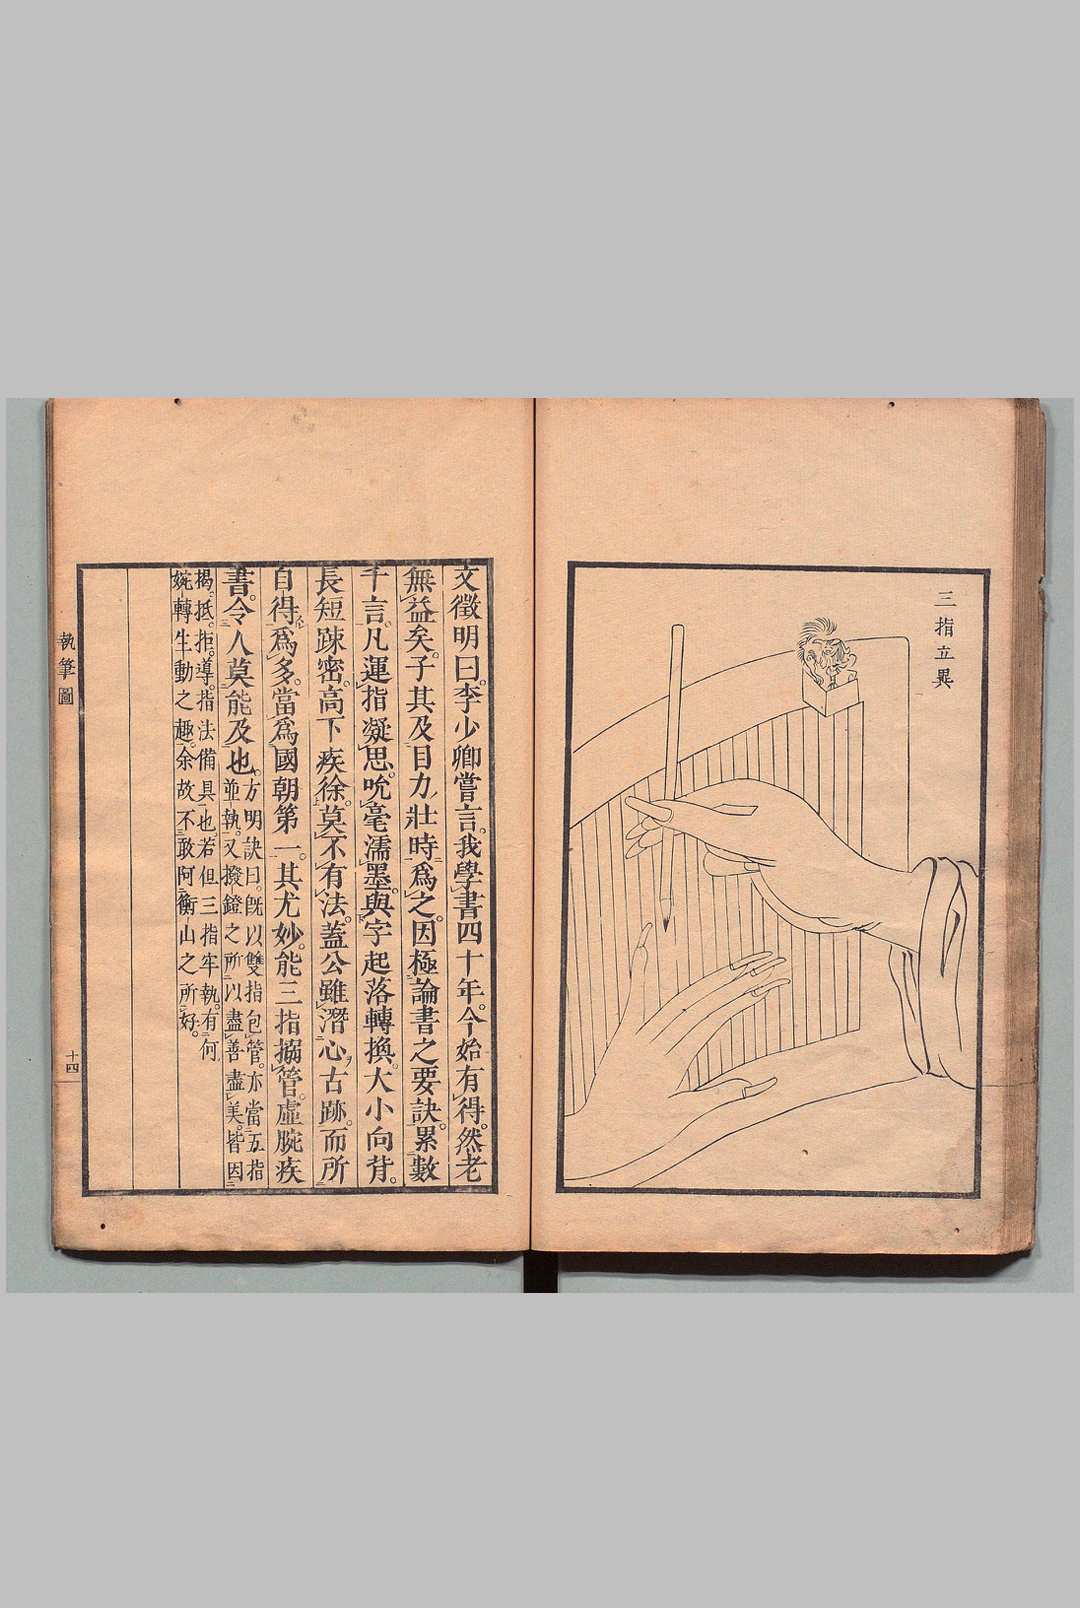 三指立異
文徵明曰。李少卿嘗言。我學書四十年。今始有得。然老
無益矣。子其及目力壯時爲之。因極論書之要訣。累數
千言。凡運指凝思。吮毫濡墨。與字起落轉換。大小向背。
長短疎密。高下疾徐。莫不有法。蓋公雖潛心古跡。而所
自得爲多。當爲國朝第一。其尤妙。能三指搦管。虛腕疾
書。令人莫能及也。
方明訣曰。旣以雙指包管。亦當五指
並執。又撥鐙之所以盡善盡美。皆因
擫抵。拒。導。指法備具也若但三指牢執。有何
婉轉生動之趣。余故不敢阿衡山之所好。
執筆圖
十四